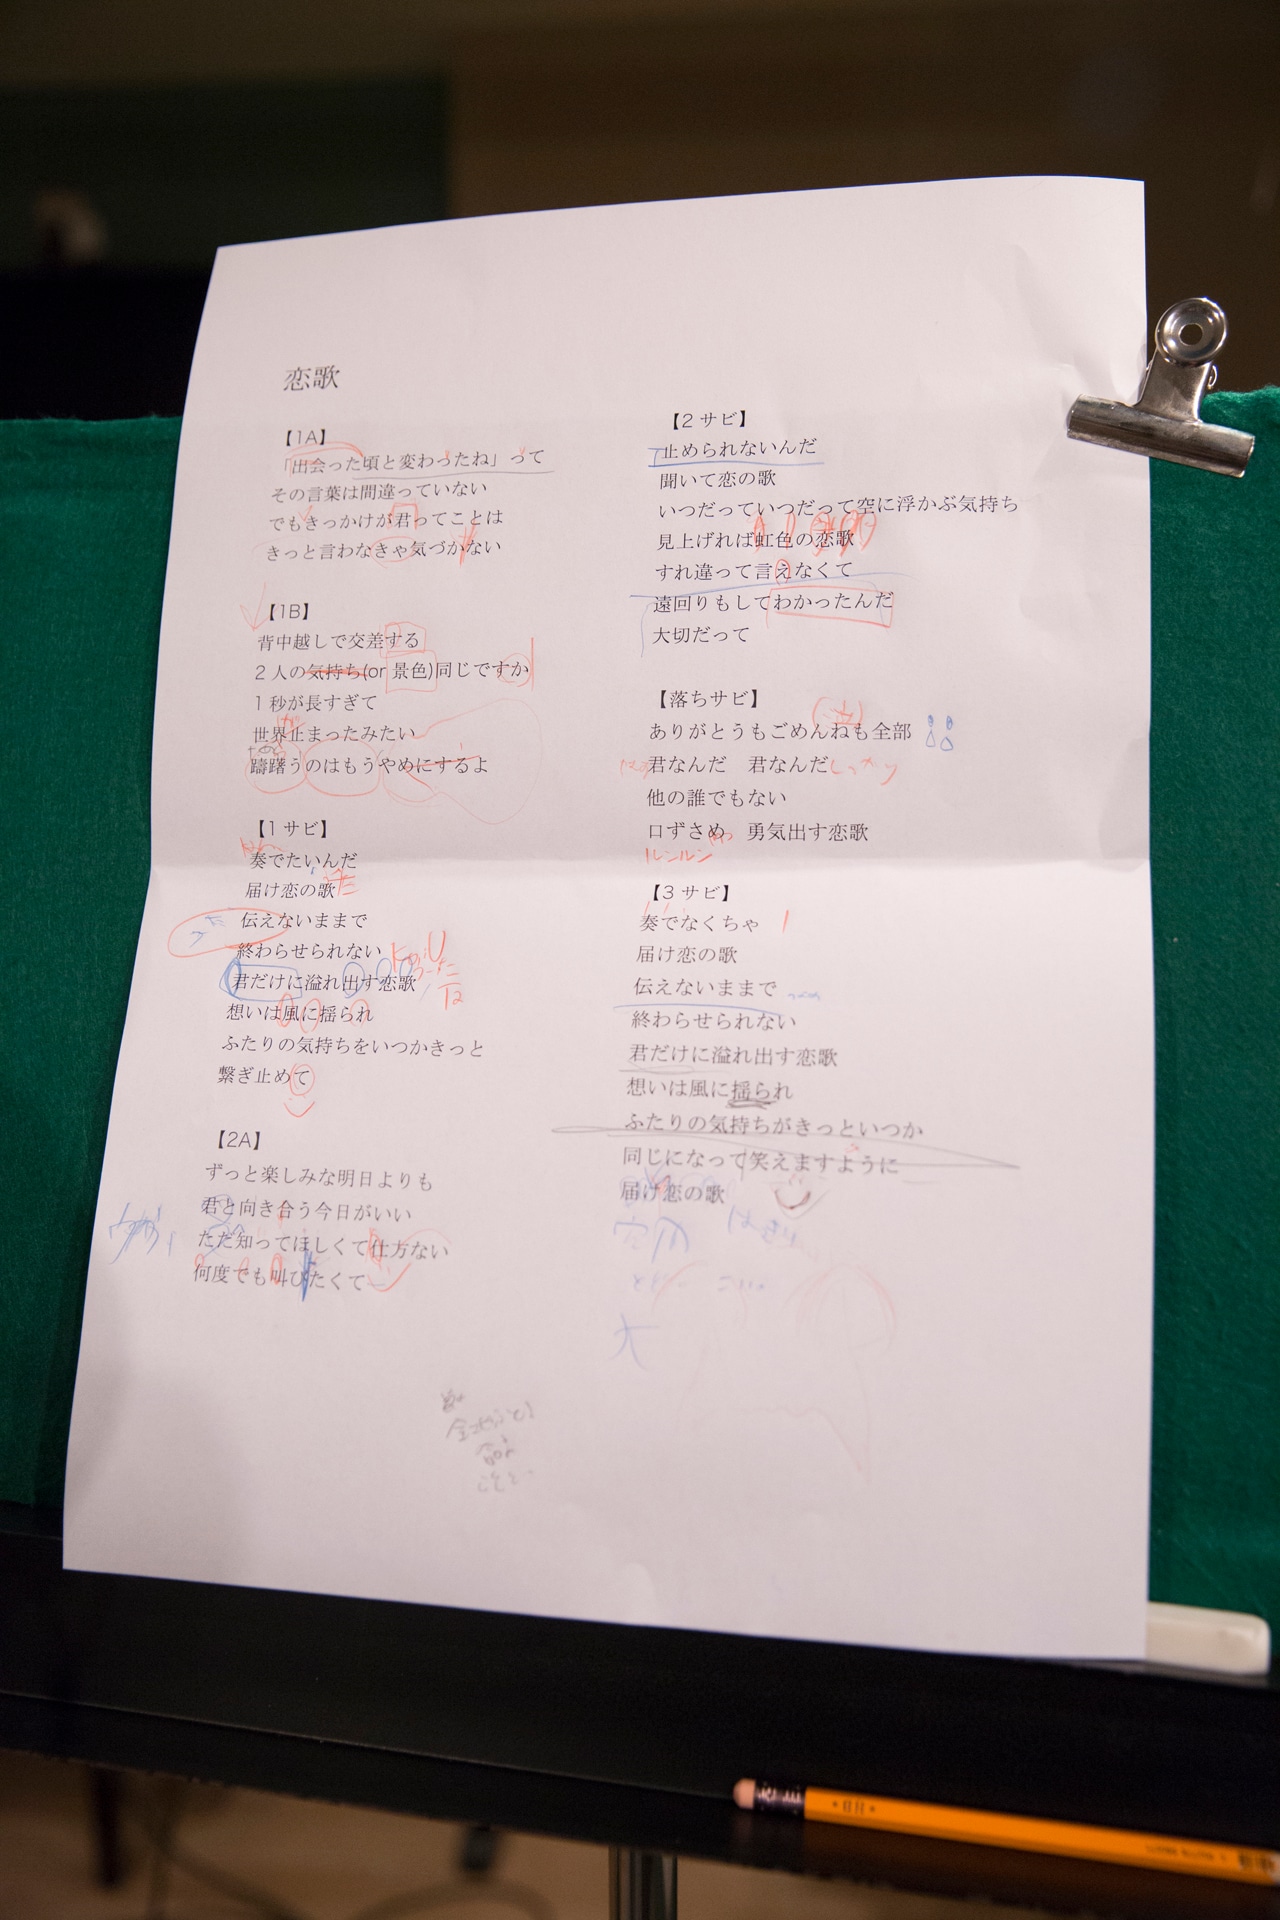 恋歌
【1A】
「出会った頃と変わったね」って
その言葉は間違っていない
でもきっかけが君ってことは
きっと言わなきゃ気づかない
【1B】
背中越しで交差する
2人の気持ち(or 景色)同じですか
1秒が長すぎて
が
世界止まったみたい
躊躇うのはもうやめにするよ
【1サビ】
奏でたいんだ
届け恋の歌
伝えないままで
終わらせられない
君だけに溢れ出す恋歌
想いは風に揺られ
ふたりの気持ちをいつかきっと
繋ぎ止めて
【2A】
ずっと楽しみな明日よりも
君と向き合う今日がいい
ただ知ってほしくて仕方ない
何度でも叫びたくて
【2サビ】
止められないんだ
聞いて恋の歌
いつだっていつだって空に浮かぶ気持ち
見上げれば虹色の恋歌
すれ違って言えなくて
遠回りもしてわかったんだ
大切だって
【落ちサビ】
ありがとうもごめんねも全部
君なんだ 君なんだ
他の誰でもない
口ずさめ 勇気出す恋歌
ルンルン
【3サビ】
奏でなくちゃ
届け恋の歌
伝えないままで
終わらせられない
君だけに溢れ出す恋歌
想いは風に揺られ
ふたりの気持ちがきっといつか
同じになって笑えますように
届け恋の歌
大